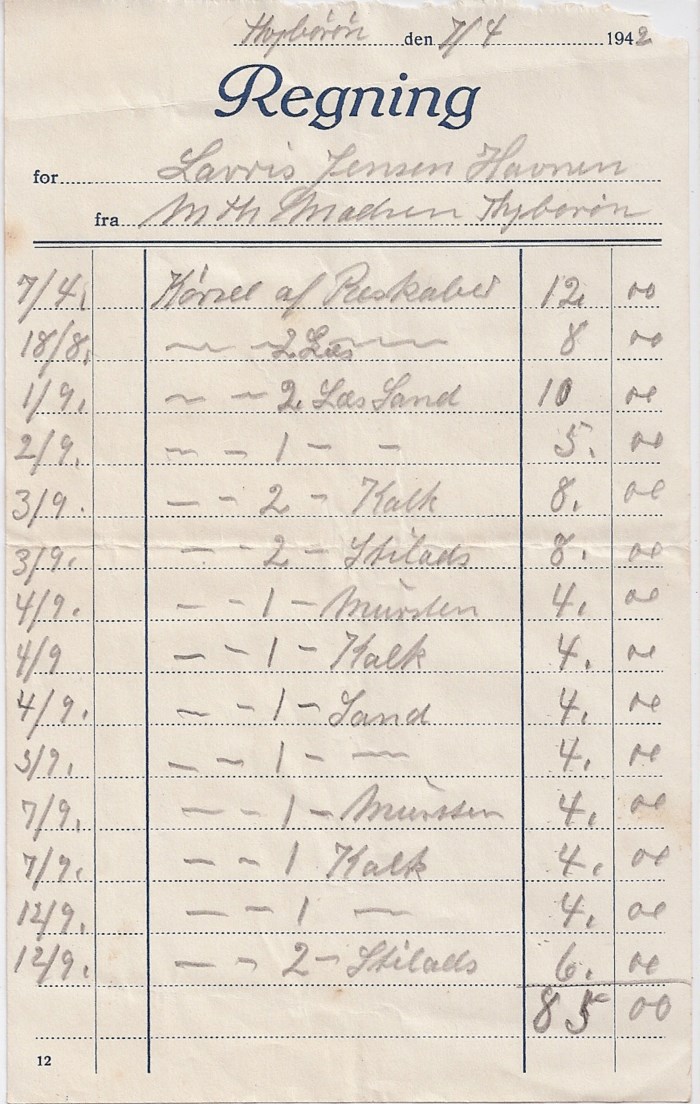 Thyborøn den 7/4 1942
Regning
for Lavris Jensen Havnen
fra M Th Madsen Thyborøn
7/4. Kørsel af Reskaber 12. 00
18/8. — - 2 Læs — 8 00
1/9. — - 2 Læs Sand 10 00
2/9. — - 1 - - 5. 00
3/9. — - 2 - Kalk 8. 00
3/9. — - 2 - Stilads 8. 00
4/9. — - 1 - Mursten 4. 00
4/9 — - 1 - Kalk 4. 00
4/9. — - 1 - Sand 4. 00
5/9. — - 1 - — 4. 00
7/9. — - 1 - Mursten 4. 00
7/9. — - 1 Kalk 4. 00
12/9. — - 1 — 4. 00
12/9. — - 2 - Stilads 6. 00
85 00
12